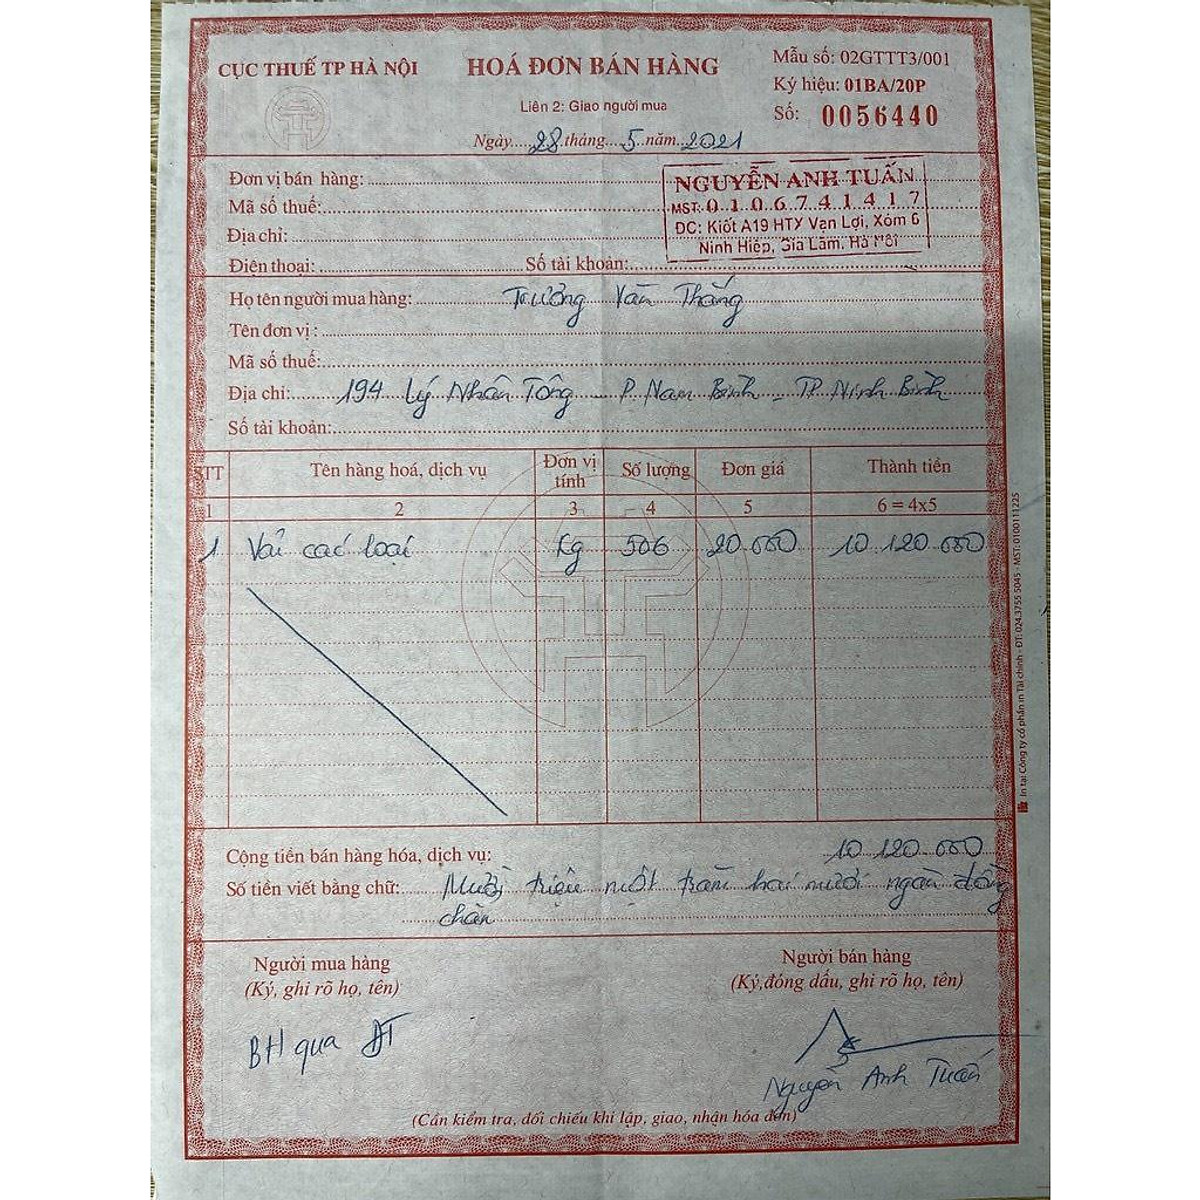 CỤC THUẾ TP HÀ NỘI
HOÁ ĐƠN BÁN HÀNG
Mẫu số: 02GTTT3/001
Ký hiệu: 01BA/20P
Liên 2: Giao người mua
Số: 0056440
Ngày 28 tháng 5 năm 2021
Đơn vị bán hàng:
NGUYỄN ANH TUẤN
Mã số thuế:
MST: 0106741417
Địa chỉ:
ĐC: Kiốt A19 HTX Vạn Lợi, Xóm 6
Ninh Hiệp, Gia Lâm, Hà Nội
Điện thoại: Số tài khoản:
Họ tên người mua hàng: Trương Văn Thắng
Tên đơn vị:
Mã số thuế:
Địa chỉ: 194 Lý Nhân Tông - P. Nam Bình - TP Ninh Bình
Số tài khoản:
STT Tên hàng hoá, dịch vụ Đơn vị tính Số lượng Đơn giá Thành tiền
1 2 3 4 5 6 = 4x5
1 Vải các loại kg 506 20.000 10.120.000
Cộng tiền bán hàng hóa, dịch vụ: 10.120.000
Số tiền viết bằng chữ: Mười triệu một trăm hai mươi ngàn đồng
chẵn
Người mua hàng
(Ký, ghi rõ họ, tên)
Người bán hàng
(Ký,đóng dấu, ghi rõ họ, tên)
BH qua ĐT
Nguyễn Anh Tuấn
(Cần kiểm tra, đối chiếu khi lập, giao, nhận hóa đơn)
In tại Công ty cổ phần in Tài chính - ĐT: 024.3755 5045 - MST: 0100111225